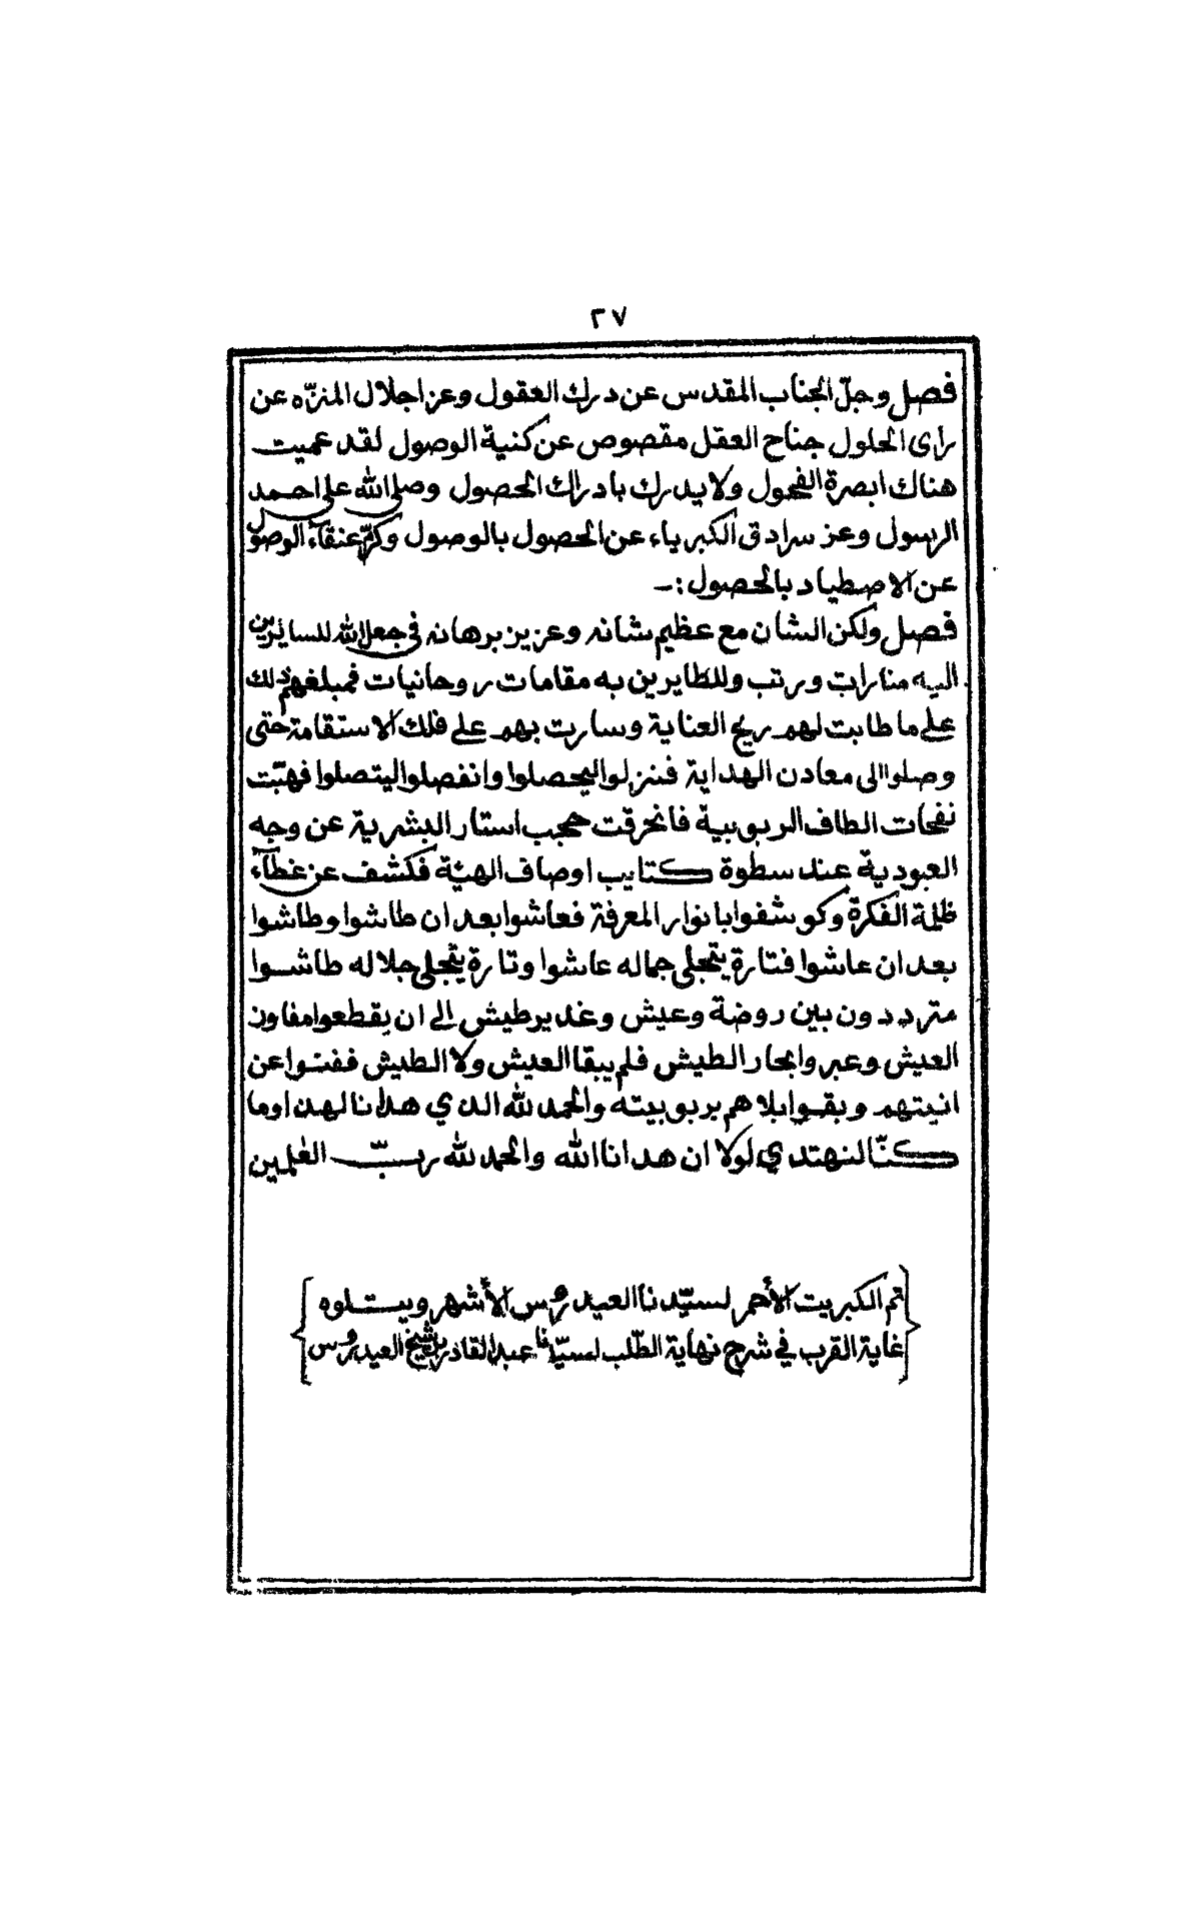 ٢٧
فصل وجلّ الجناب المقدس عن درك العقول وعز اجلال المنزّه عن
راى الحلول جناح العقل مقصوص عن كنية الوصول لقد عميت
هناك ابصرة الفحول ولا يدرك بادراك الحصول وصلى الله على احمد
الرسول وعز سرادق الكبرياء عن الحصول بالوصول وكرّم عنقاء الوصول
عن الاصطياد بالحصول :ـ
فصل ولكن الشان مع عظيم شانه وعزيز برهانه في جعل الله للسائرين
اليه منارات ورتب وللطايرين به مقامات روحانيات فمبلغهم ذلك
على ما طابت لهم ريح العناية وسارت بهم على فلك الاستقامة حتى
وصلوا الى معادن الهداية فنزلوا ليحصلوا وانفصلوا ليتصلوا فهبّت
نفحات الطاف الربوبية فانخرقت حجب استار البشرية عن وجه
العبودية عند سطوة كتايب اوصاف الهيّة فكشف عن غطآء
ظلمة الفكرة وكوشفوا بانوار المعرفة فعاشوا بعد ان طاشوا وطاشوا
بعد ان عاشوا فتارة يتجلى جماله عاشوا وتارة يتجلى جلاله طاشوا
مترددون بين روضة وعيش وغدير طيش الى ان يقطعوا مفاوز
العيش وعبروا بحار الطيش فلم يبقا العيش ولا الطيش ففنوا عن
انيتهم وبقوا بلاهم بربوبيته والحمد لله الذي هدانا لهذا وما
كنّا لنهتدي لولا ان هدانا الله والحمد لله ربّ العٰلمين
تم الكبريت الأحمر لسيّدنا العيدروس الأشهر ويتلوه
غاية القرب في شرح نهاية الطّلب لسيّدنا عبد القادر بن شيخ العيدروس